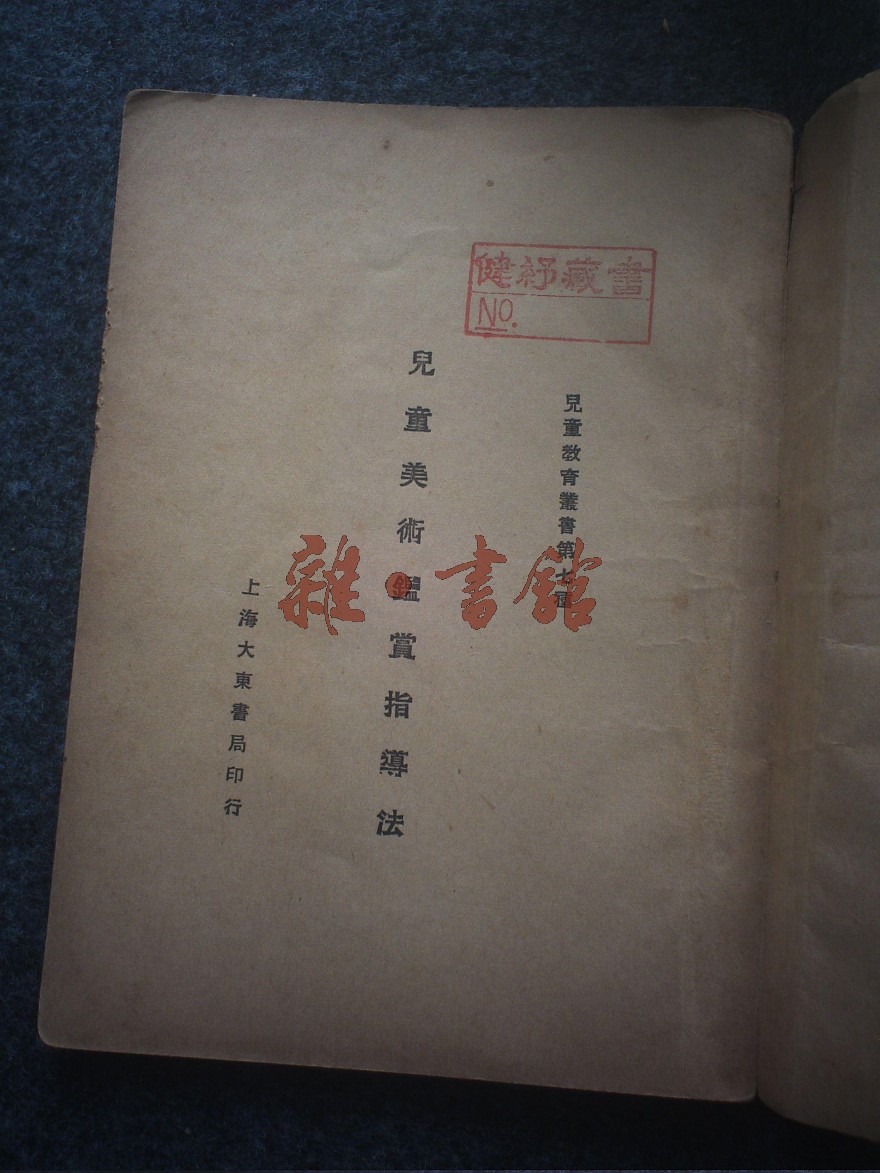 健紓藏書
No.
兒童教育叢書第七種
兒童美術鑑賞指導法
上海大東書局印行
雜·書館